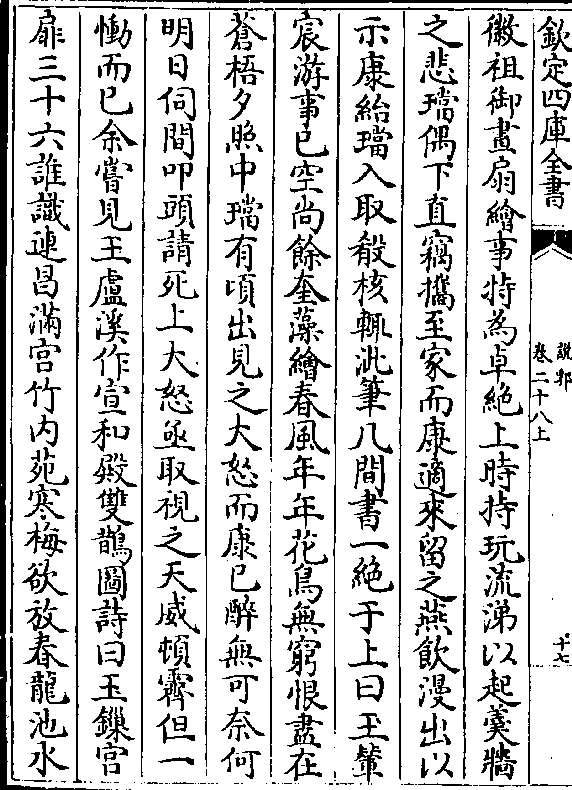 欽定四庫全書
說郛
卷二十八上
十七
徽祖御畫扇繪事特為卓絕上時持玩流涕以起羮牆
之悲璫偶下直竊攜至家而康適來留之燕飲漫出以
示康紿璫入取殽核輒泚筆几間書一絕于上曰玉輦
宸游事已空尚餘奎藻繪春風年年花鳥無窮恨盡在
蒼梧夕照中璫有頃出見之大怒而康已醉無可奈何
明日伺間叩頭請死上大怒亟取視之天威頓霽但一
慟而已余嘗見王盧溪作宣和殿雙鵲圖詩曰玉鏁宫
扉三十六誰識連昌滿宫竹内苑寒梅欲放春龍池水